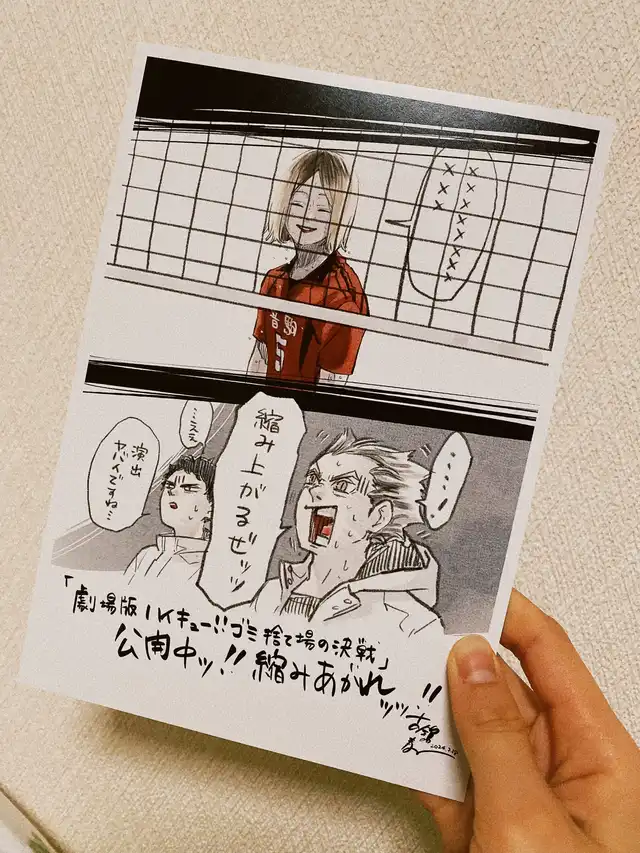 ××××××××
×××
音駒
5
……!
縮み上がるぜッッ
…ええ
演出
ヤバイですね…
「劇場版ハイキュー!!ゴミ捨て場の決戦」
公開中ッ!! 縮みあがれッッッ!!